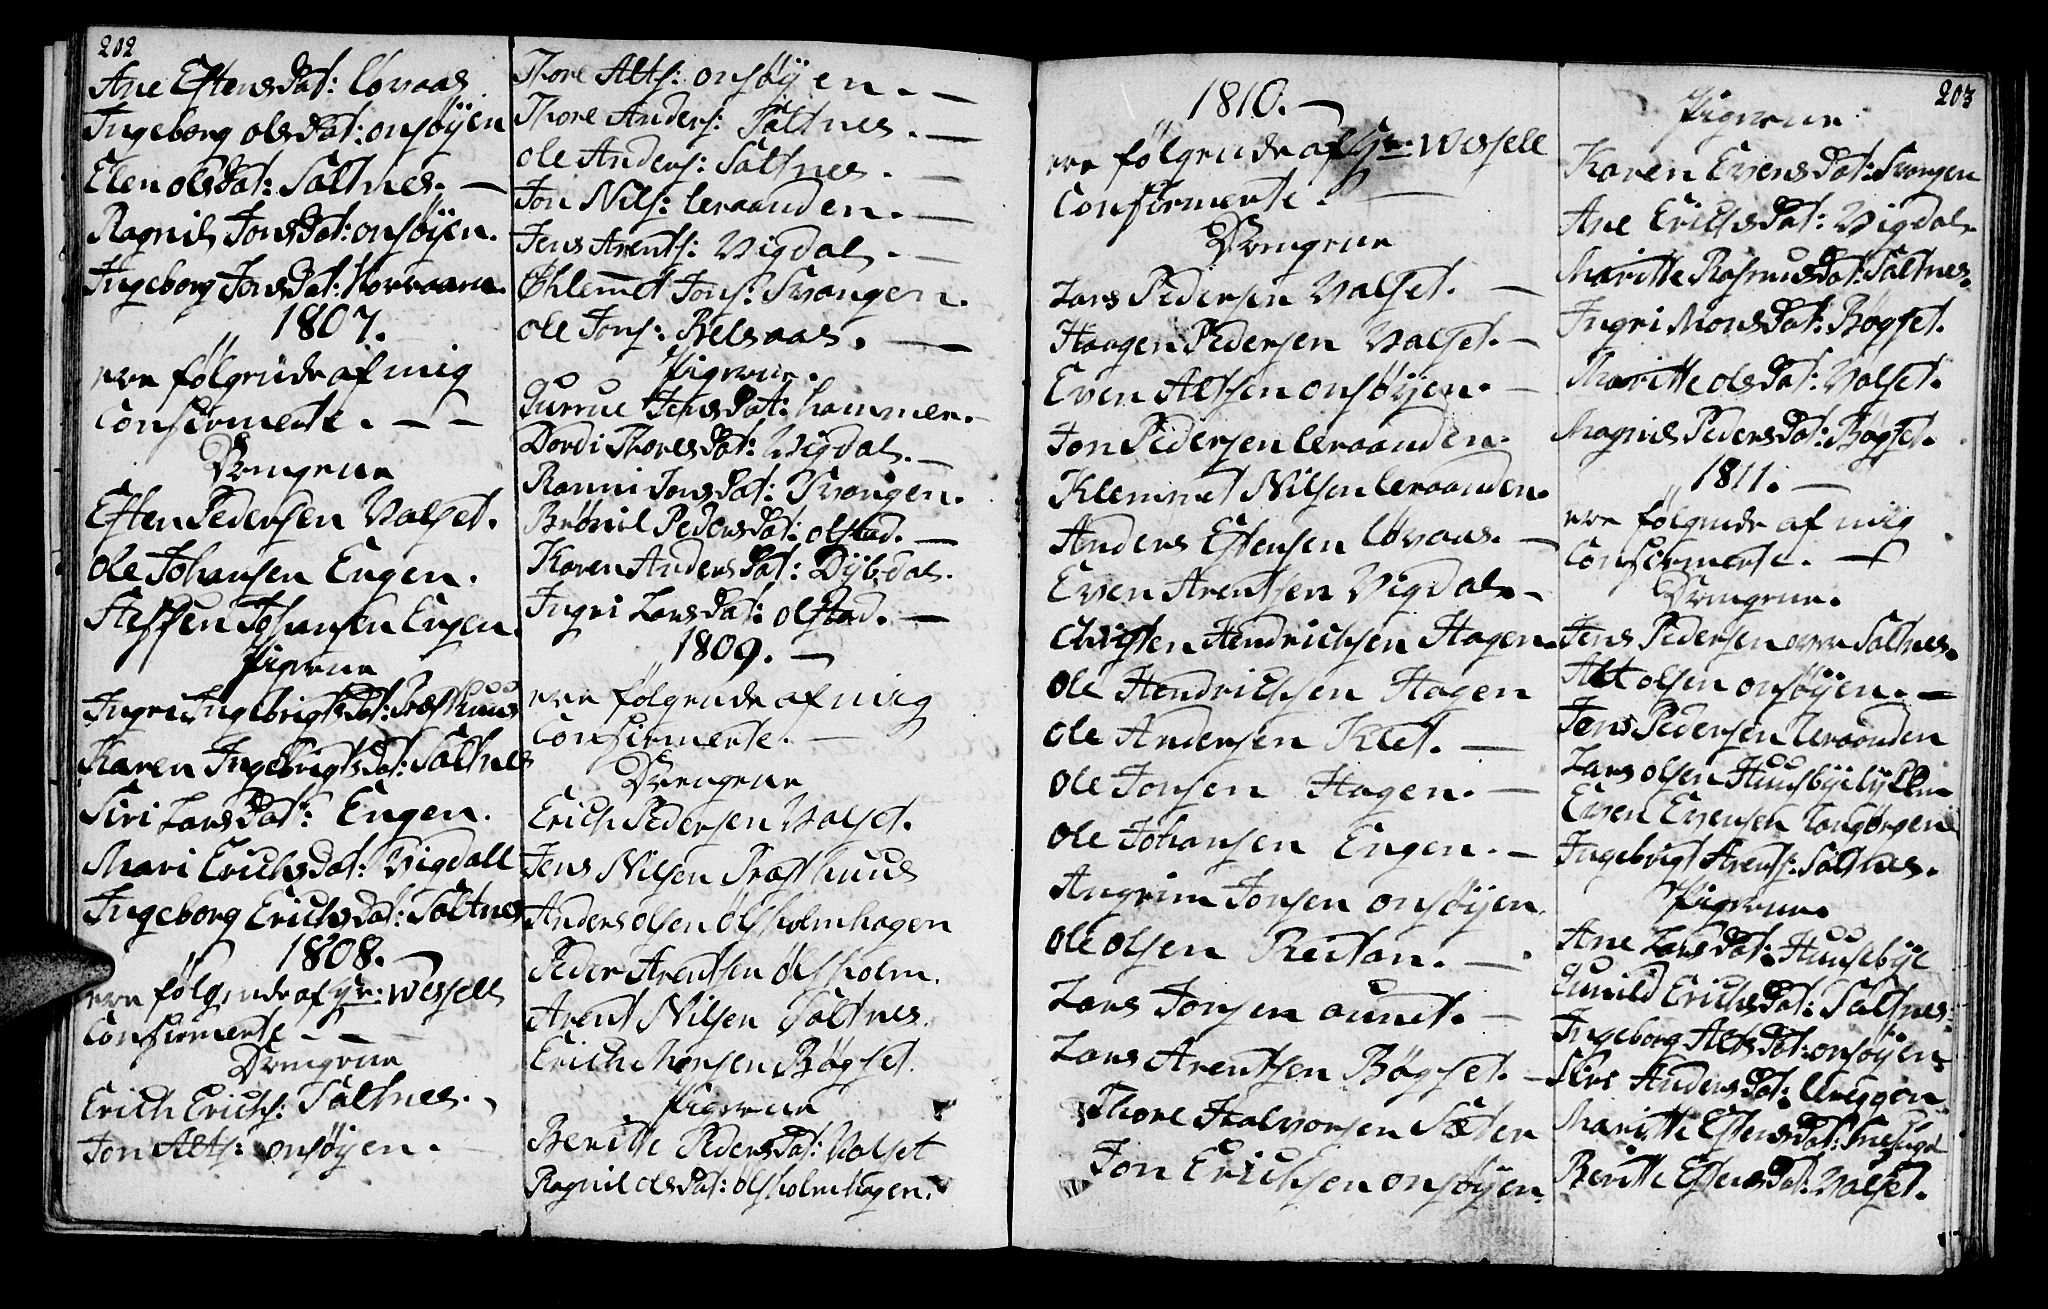 202
Ane Estensdat: Løvaas
Ingeborg olsdat: onsøyen
Elen olsdat: Saltnes. —
Ragnil Jonsdat: onsøyen.
Ingeborg Jonsdat:
1807.
ere følgende af mig
Confirmerte. — —
Drengene
Esten Pedersen Valset.
Ole Johansen Engen.
Steffen Johansen Engen.
Pigerne
Ingri Ingebrigtsdat: Præsthuus
Karen Ingebrigtsdat: Saltnes
Siri Larsdat: Engen.
Mari Erichsdat: Vigdall
Ingeborg Erichsdat: Saltnes
1808. —
ere følgende af Hr: Wessell
Confirmerte — — —
Drengene
Erich Erichs: Saltnes. —
Jon Alts: onsøyen. —
Thore Alts: onsøyen. —
Thore Anders: Saltnes. —
Ole Anders: Saltnes. —
Jon Nils: leraanden. —
Jens Arents: Vigdal. —
Chlemet Jons: Svangen.
Ole Jons: Belsaas. —
Pigerne.
Gurrue Jensdat: hammer. —
Dordi Thoresdat: Vigdal. —
Ranni Jonsdat: Svangen.
Brønil Pedersdat: olstad. —
Karen Andersdat: Dybdal.
Ingri Larsdat: olstad. —
1809. —
ere følgende af mig
Confirmerte. —
Drengene
Erich Pedersen Valset.
Jens Nilsen Præsthuus
Anders olsen ølsholmhagen
Peder Arentsen ølsholm.
Arent Nilsen Saltnes.
Erich Monsen Bøgset.
Pigerne
Beritte Pedersdat: Valset
Ragnil olsdat: ølsholmhagen.
1810. —
ere følgende af Hr: Wessell
Confirmerte. —
Drengene
Lars Pedersen Valset. —
Haagen Pedersen Valset. —
Even Altsen onsøyen. —
Jon Pedersen leraanden.
Klemmet Nilsen leraanden.
Anders Estensen Løvaas. —
Even Arentsen Vigdal. —
Christen Hendrichsen Hagen.
Ole Hendrichsen Hagen
Ole Andersen Klet. —
Ole Jonsen Hagen. —
Ole Johansen Engen. —
Angrim Jonsen onsøyen.
Ole olsen Reitan. —
Lars Jonsen aunet. —
Lars Arentsen Bøgset. —
Thore Halvorsen Sæter
Jon Erichsen onsøyen.
203
Pigerne
Karen Evensdat: Svangen
Ane Erichsdat: Vigdal.
Maritte Rasmusdat: Saltnes.
Ingri Monsdat: Bøgset.
Maritte olsdat: Valset.
Magnil Pedersdat: Bøgset.
1811. —
ere følgende af mig
Confirmerte. —
Drengene.
Jens Pedersen øvre Saltnes.
Alt olsen onsøyen. —
Jens Pedersen leraanden
Lars olsen
Even Evensen
Ingebrigt Arents: Saltnes.
Pigerne
Ane Larsdat: Huusebye
Gunild Erichsdat: Saltnes.
Ingeborg Altsdat: onsøyen
Siri Andersdat:
Maritte Estensdat:
Beritte Estensdat: Valset.